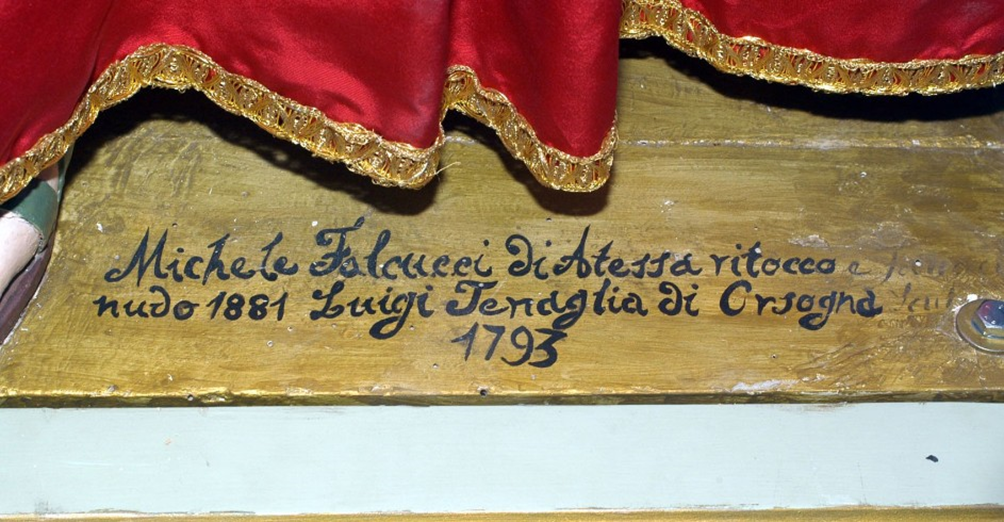 Michele Falcucci di Atessa ritocco e
nudo 1881 Luigi Tenaglia di Orsogna
1793